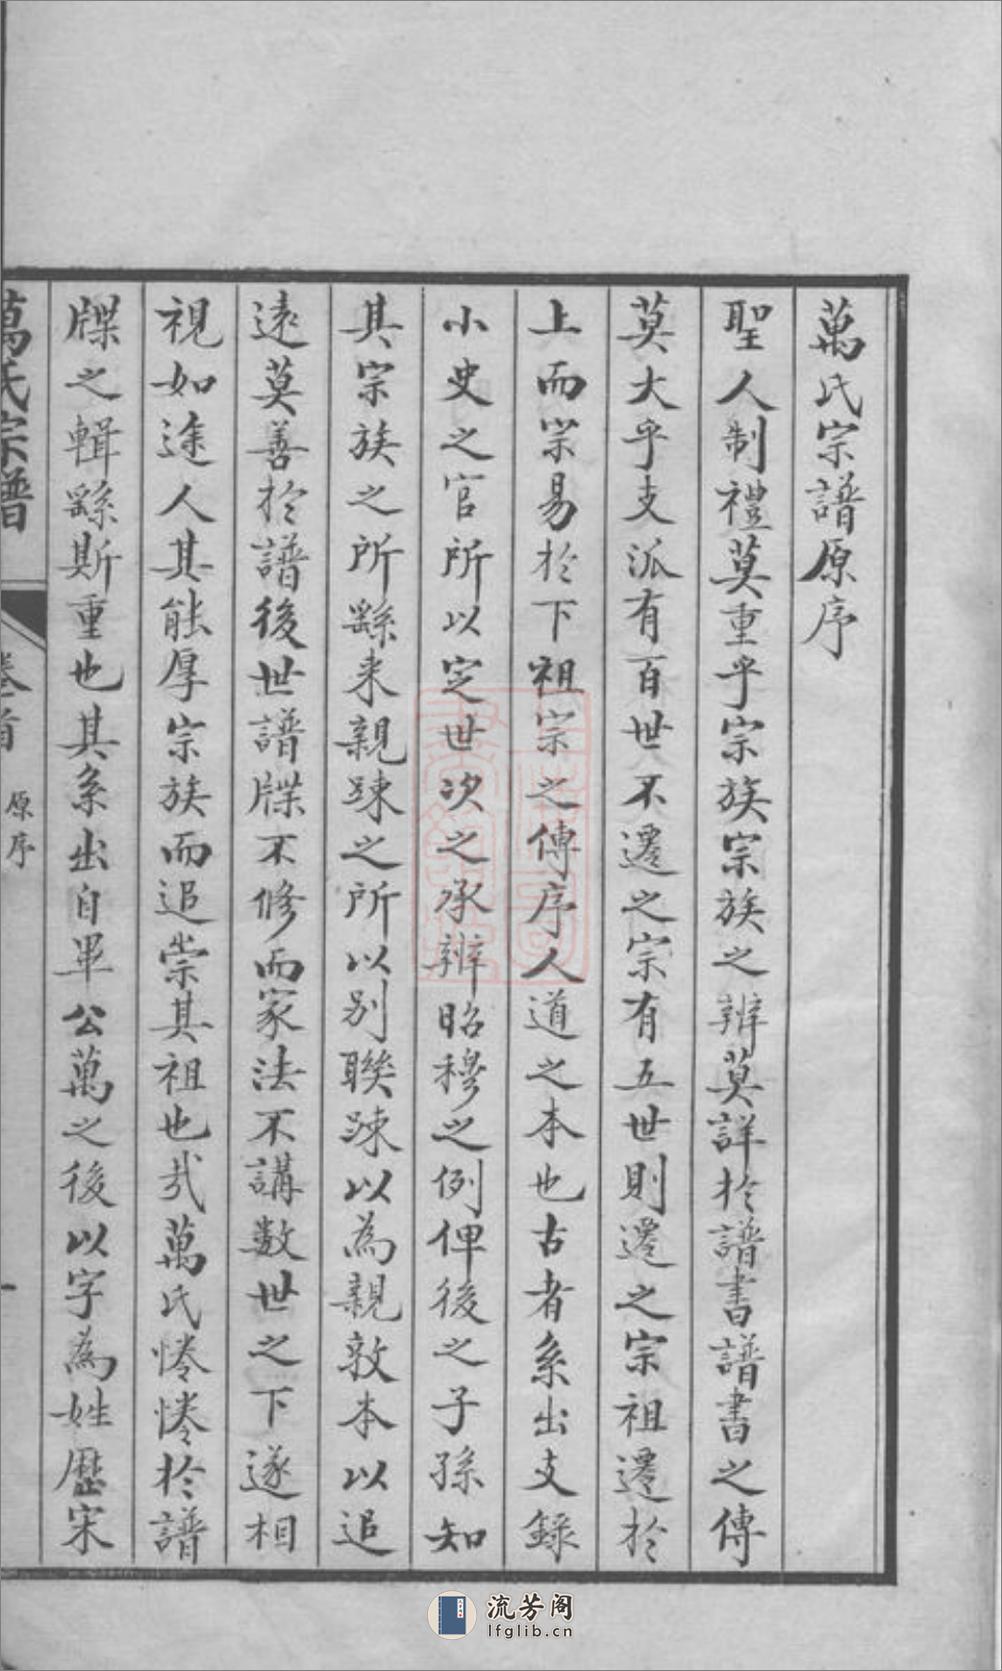 萬氏宗譜原序
聖人制禮莫重乎宗族宗族之辨莫詳於譜書譜書之傳
莫大乎支派有百世不遷之宗有五世則遷之宗祖遷於
上而宗易於下祖宗之傳序人道之本也古者系出支錄
小史之官所以定世次之承辨昭穆之例俾後之子孫知
其宗族之所繇来親踈之所以别聯踈以為親敦本以追
遠莫善於譜後世譜牒不修而家法不講数世之下遂相
視如途人其能厚宗族而追崇其祖也㢤萬氏惓惓於譜
牒之輯繇斯重也其系出自畢公萬之後以字為姓歷宋
萬氏宗譜
卷首
原序
一
流芳阁
lfglib.cn